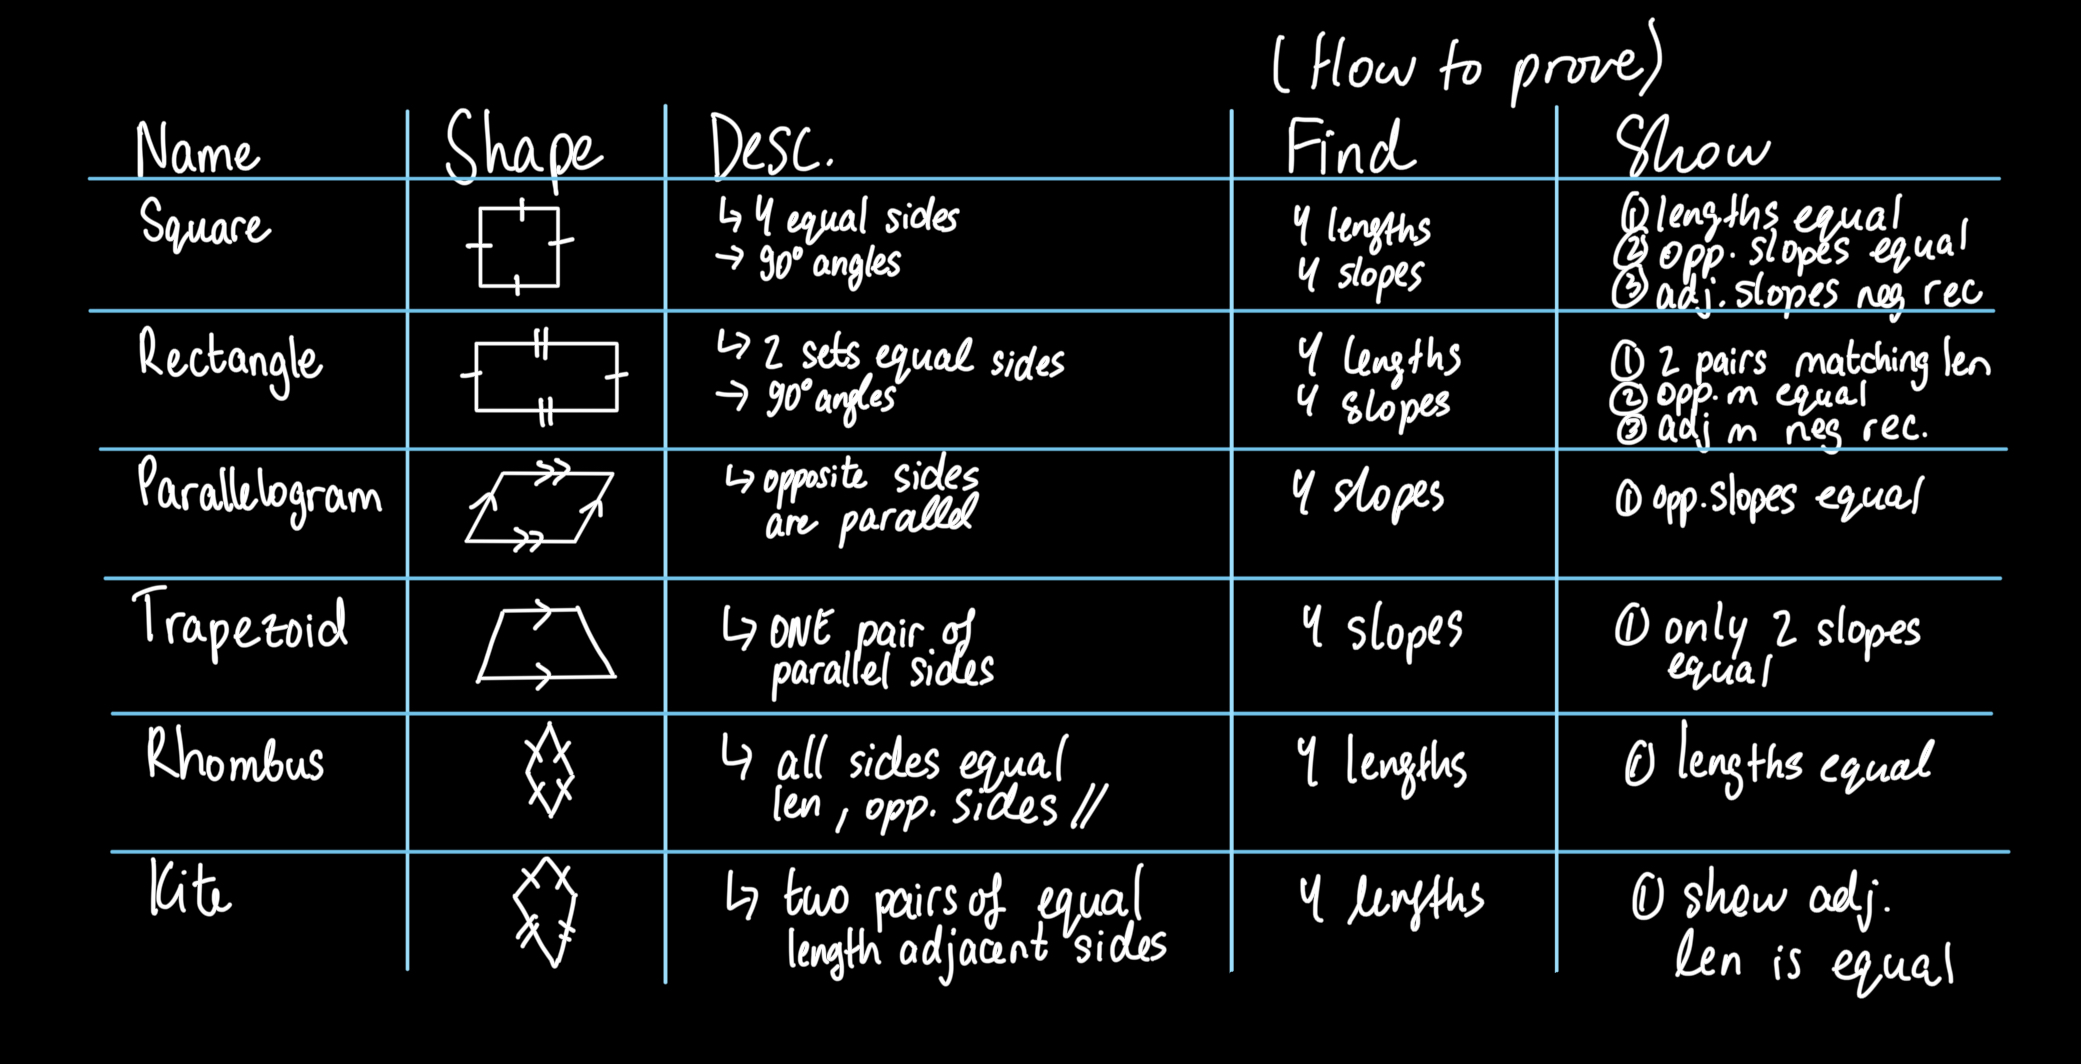 (How to prove)
Name Shape Desc. Find Show
Square
↳ 4 equal sides
→ 90° angles
4 lengths
4 slopes
① lengths equal
② opp. slopes equal
③ adj. slopes neg rec
Rectangle
↳ 2 sets equal sides
→ 90° angles
4 lengths
4 slopes
① 2 pairs matching len
② opp. m equal
③ adj m neg rec.
Parallelogram
↳ opposite sides
are parallel
4 slopes
① opp. slopes equal
Trapezoid
↳ ONE pair of
parallel sides
4 slopes
① only 2 slopes
equal
Rhombus
↳ all sides equal
len, opp. sides //
4 lengths
① lengths equal
Kite
↳ two pairs of equal
length adjacent sides
4 lengths
① show adj.
len is equal